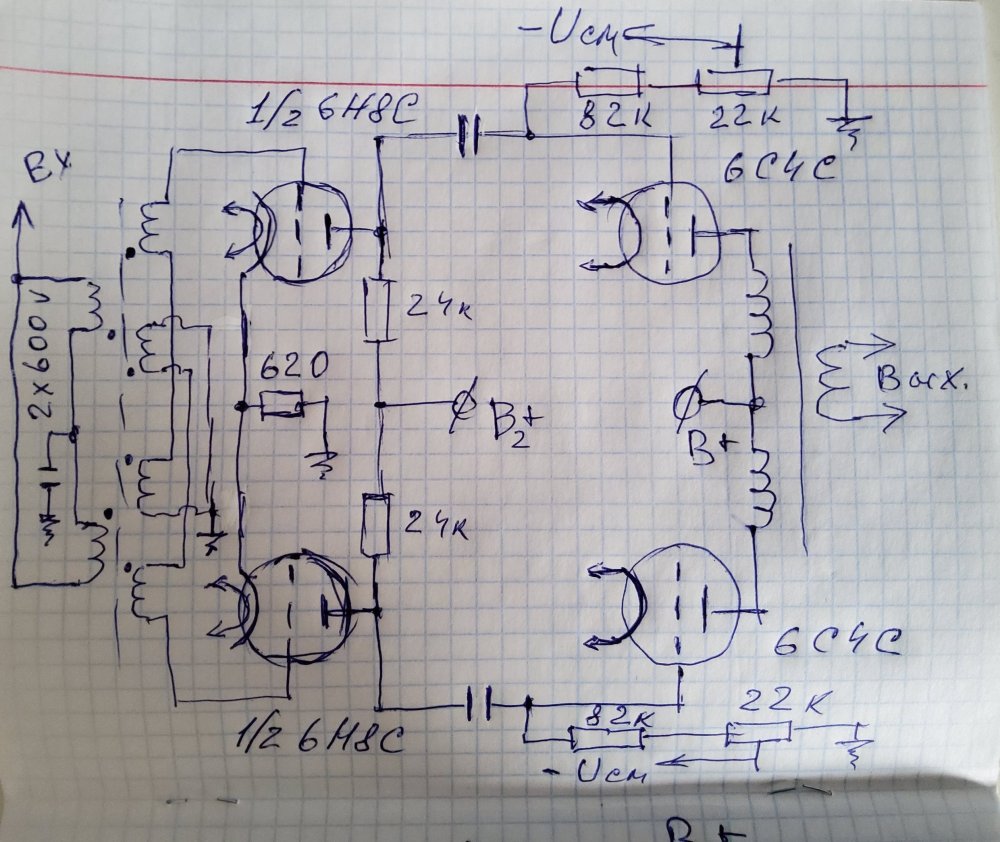 -Uсм
82к 22к
1/2 6Н8С
6С4С
Вх
24к
2х600V
620
B2+
B+
Вых.
24к
6С4С
1/2 6Н8С
82к 22к
-Uсм
B+